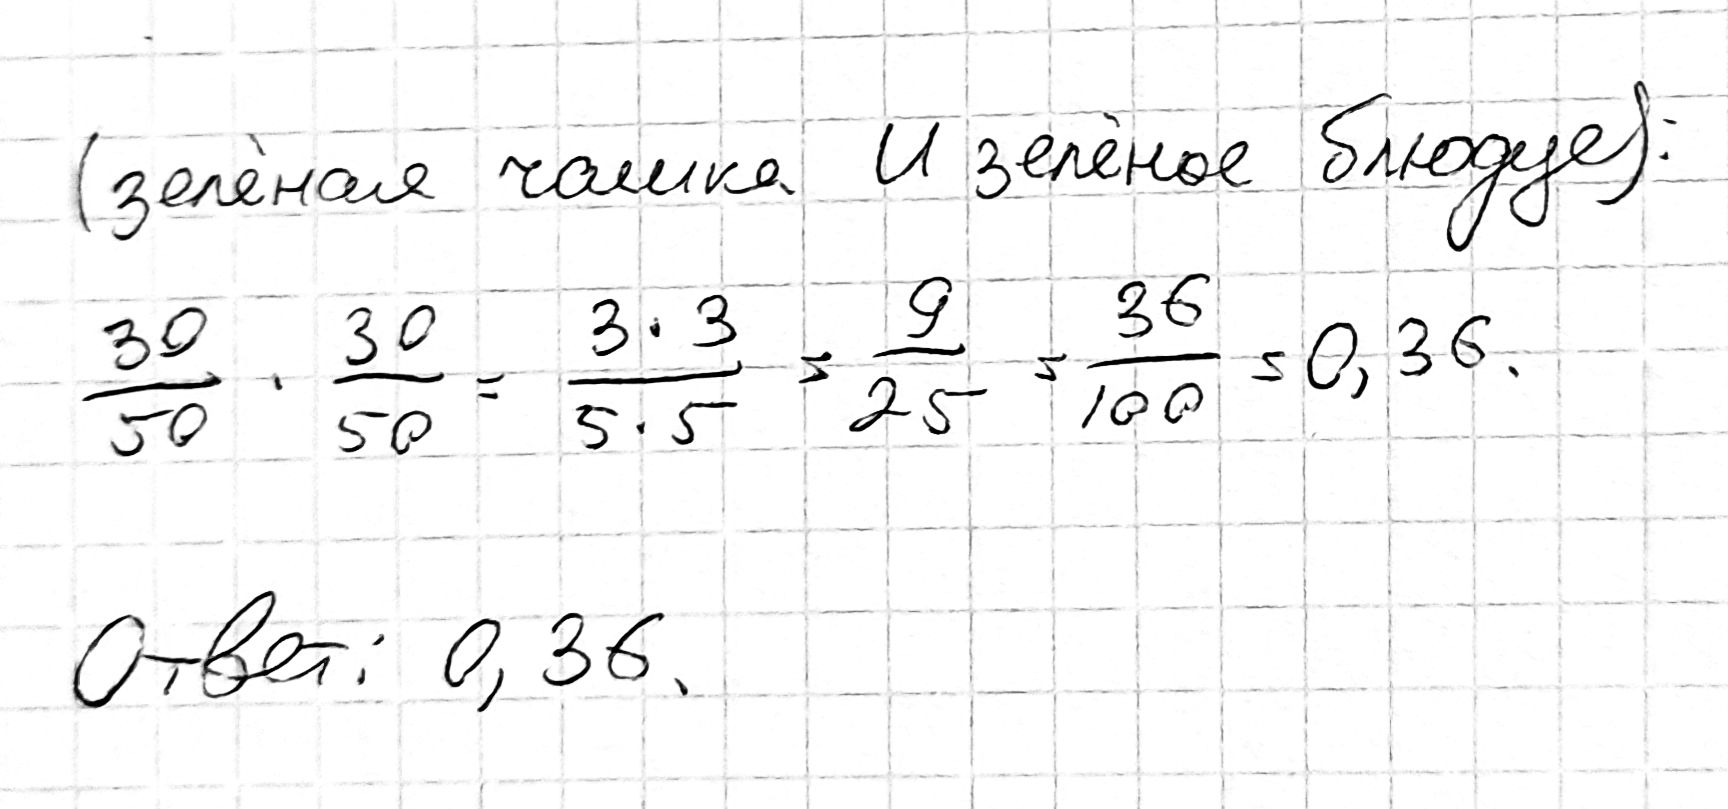 (зелёная чашка И зелёное блюдце):
30/50 · 30/50 = 3·3/5·5 = 9/25 = 36/100 = 0,36.
Ответ: 0,36.